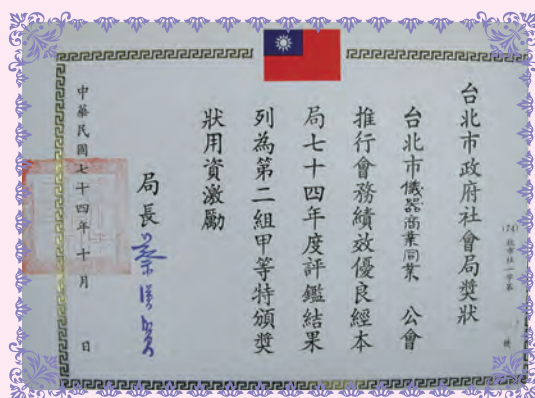 (74)北市社一字第 號
台北市政府社會局獎狀
台北市儀器商業同業 公會
推行會務績效優良經本
局七十四年度評鑑結果
列為第二組甲等特頒獎
狀用資激勵
局長
中華民國七十四年十月 日